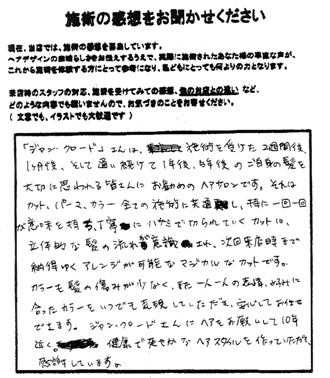 施術の感想をお聞かせください
現在、当店では、施術の感想を募集しています。
ヘアデザインの素晴らしさをお伝えするうえで、実際に施術されたあなた様の率直な声が、
これから施術を体験する方にとって参考になり、私どもにとっても何よりの力となります。
来店時のスタッフの対応、施術を受けてみての感想、他のお店との違い など、
どのような内容でも構いませんので、お気づきのことをお寄せください。
（ 文章でも、イラストでも大歓迎です ）
「ジャン・クロード」さんは、施術を受けた2週間後、
1ヶ月後、そして通い続けて1年後、5年後のご自身の髪を
大切に思われる皆さんにお勧めのヘアサロンです。それは
カット、パーマ、カラー全ての施術に共通し、特に一回一回
が意味を持ち、丁寧にハサミで切られていくカットは、
立体的な髪の流れが意識され、次回来店時まで
納得ゆくアレンジが可能なマジカルなカットです。
カラーも髪の傷みが少なく、また一人一人の 好みに
合ったカラーをいつでも 安心してお任せ
できます。ジャン・クロードさんにヘアをお願いして10年
近く。健康で爽やかなヘアスタイルを作っていただき、
感謝しています。